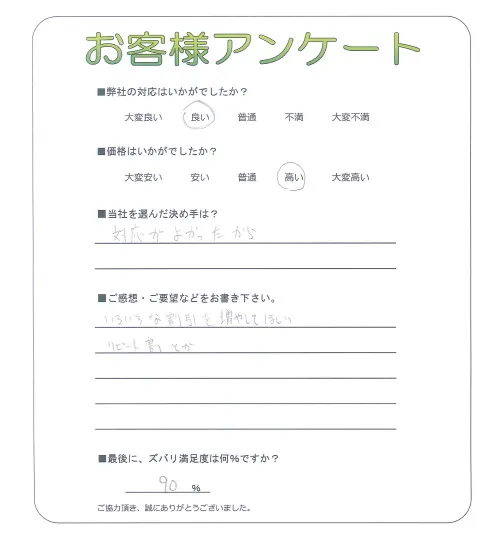 お客様アンケート
■弊社の対応はいかがでしたか？
大変良い 良い 普通 不満 大変不満
■価格はいかがでしたか？
大変安い 安い 普通 高い 大変高い
■当社を選んだ決め手は？
対応がよかったから
■ご感想・ご要望などをお書き下さい。
いろいろな割引を増やしてほしい
リピート割とか
■最後に、ズバリ満足度は何％ですか？
90 %
ご協力頂き、誠にありがとうございました。